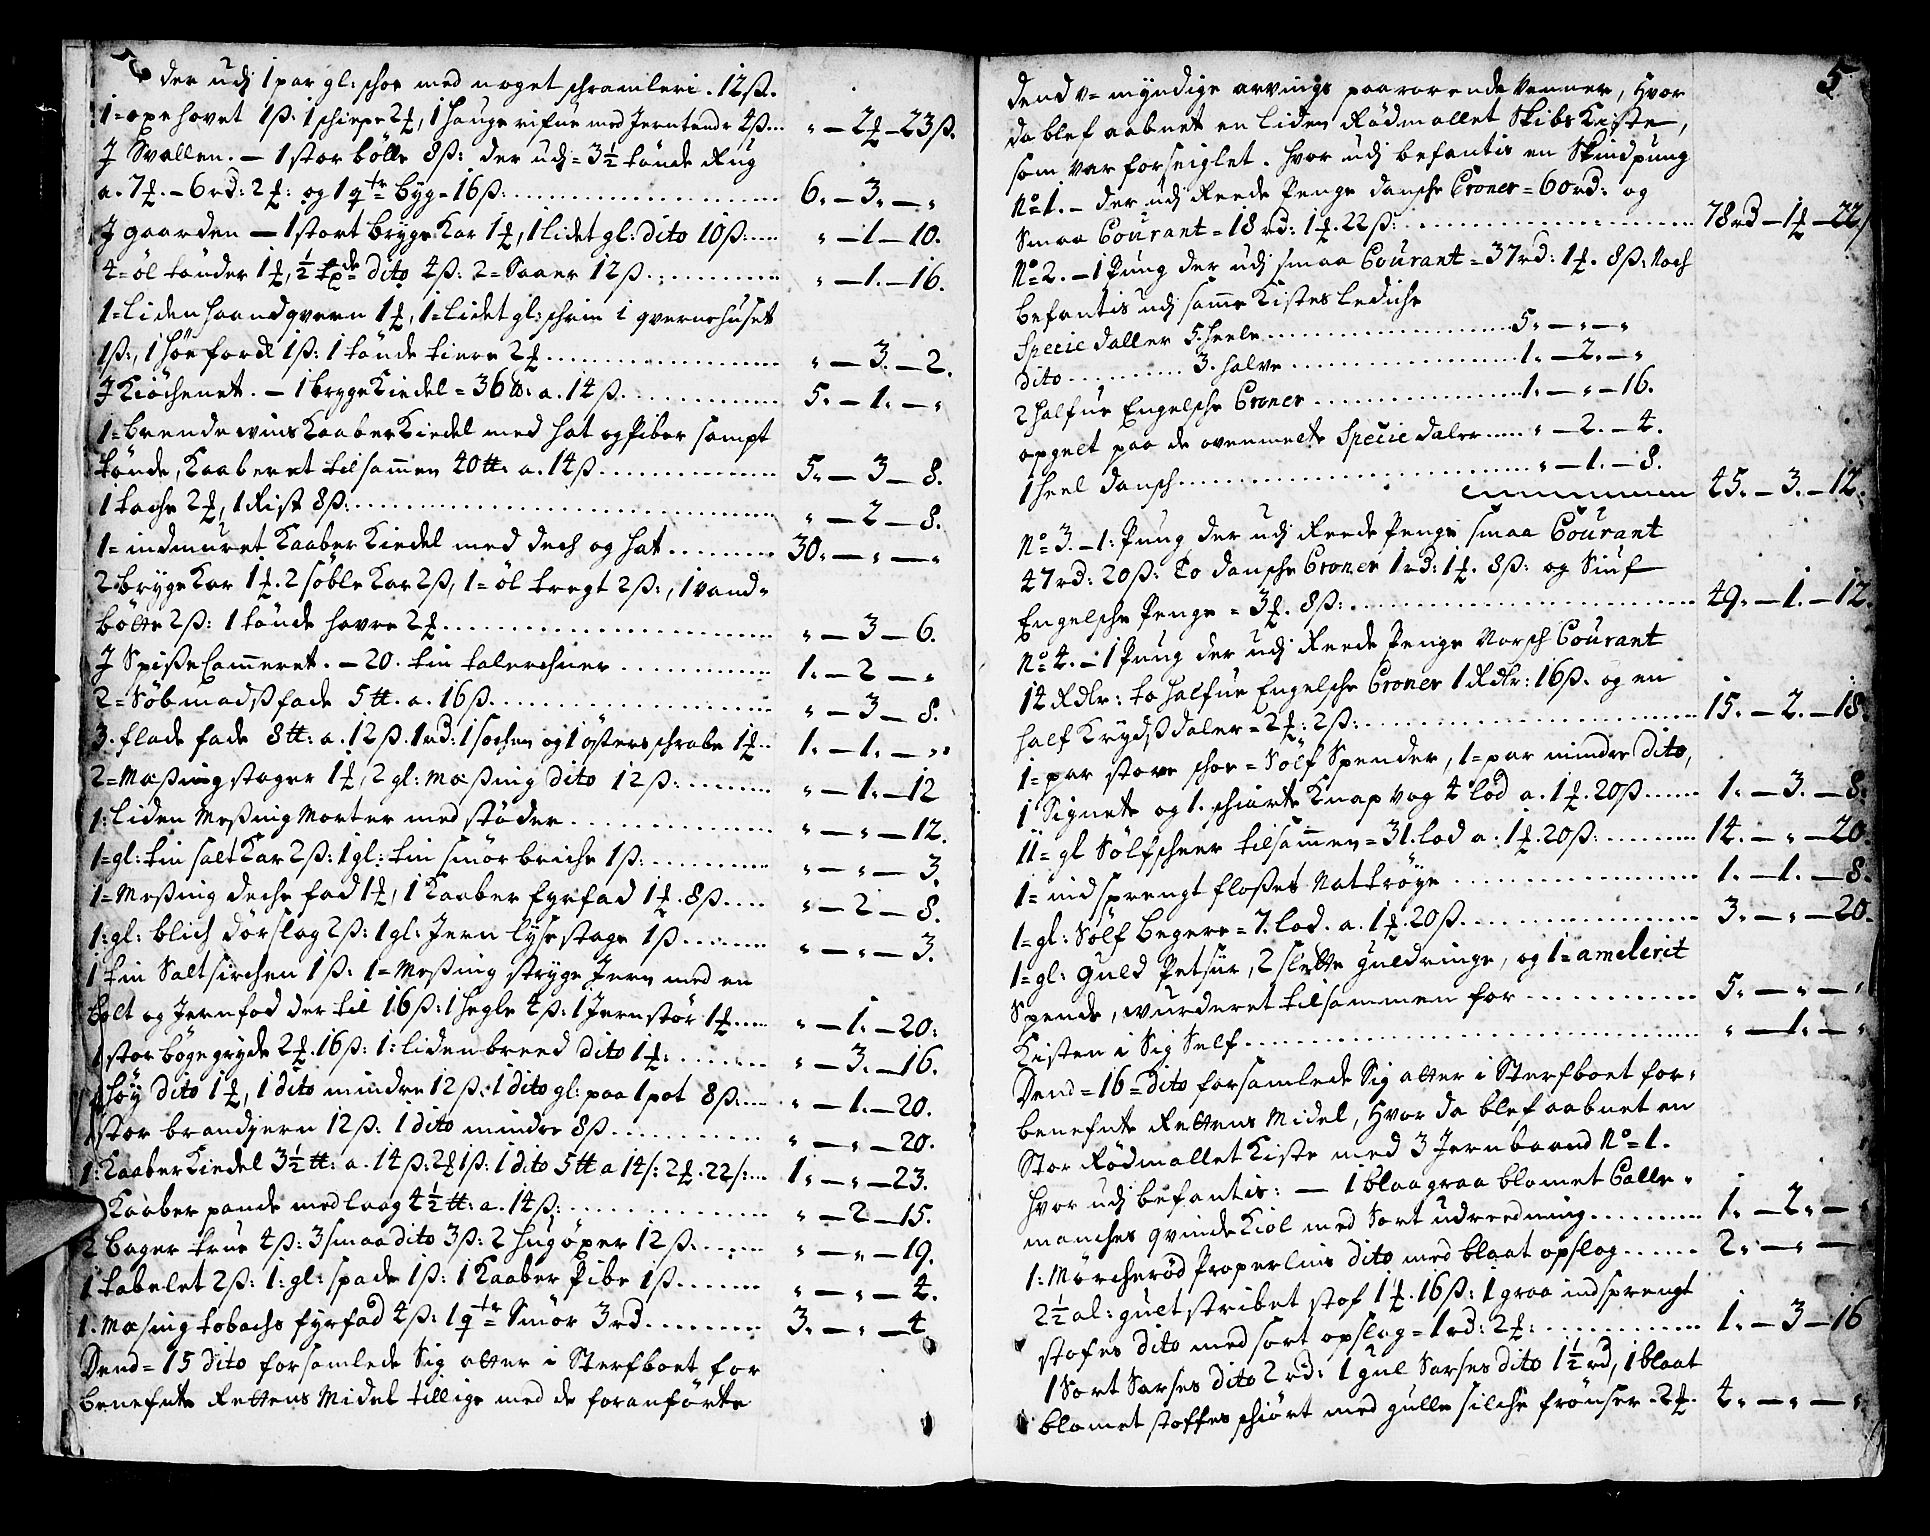 der udj 1 par gl: schoe med noget schramleri . 12ß.
1=øxehovet 1ß: 1 schiepe 2 ℔, 1 Hauge rifue med Jerntende 4ß... " – 2 ℔ – 23ß.
J Svallen. – 1 stor bølle 8ß: der udj = 3½ tønde Rug
a. 7 ℔. – 6rd: 2 ℔: og 1 qtr byg = 16ß: ........ 6. – 3. – "
J gaarden – 1 stort brygeKar 1 ℔, 1 lidet gl: dito 10ß: .... " – 1 – 10.
4=øl tønder 1 ℔, ½ tøde dito 4ß: 2=Saaer 12ß .: ........ " – 1. – 16.
1=liden haandqvern 1 ℔, 1=lidet gl: schrin i qvernehuset
1ß:, 1 høe fork 1ß: 1 tønde tiere 2 ℔ ........ " – 3. – 2.
J Kiøchenet. – 1 brygeKiedel = 36 ℔: a. 14ß. ........ 5. – 1. – "
1=brendewins KaaberKiedel med hat og Piber sampt
tønde, Kaaberet tilsammen 40 ℔: a. 14ß ........ 5. – 3 – 8.
1 tache 2 ℔, 1 Rist 8ß: ........ " – 2 – 8.
1=indmuret Kaaber Kiedel med dech og hat ........ 30. – " – "
2 brygeKar 1 ℔. 2 søbleKar 2ß, 1=øl tregt 2ß:, 1 vand=
bøtte 2ß: 1 tønde havre 2 ℔ ........ " – 3 – 6.
J SpißeCammeret. – 20. tin talerchner ........ 1. – 2 – "
2=Søbmadßfade 5 ℔. a. 16ß. ........ " – 3 – 8.
3. flade fade 8 ℔: a. 12ß. 1rd: 1 sochen og 1 østers schrabe 1 ℔.. 1. – 1. – "
2=Meßingstager 1 ℔, 2 gl: Meßing dito 12ß: ........ " – 1. – 12
1: liden Meßing Morter med støder ........ " – " – 12.
1=gl: tin saltKar 2ß: 1 gl: tin smørbriche 1ß: ........ " – " – 3.
1=Meßing deche fad 1 ℔, 1 Kaaber fyrfad 1 ℔. 8ß.... " – 2 – 8.
1: gl: blich dørslag 2ß: 1 gl: Jern lysestage 1ß ........ " – " – 3.
1 tin Saltsirchen 1ß: 1=Meßing stryge Jern med en
bolt og Jernfod der til 16ß: 1 hegle 4ß: 1 Jernstør 1 ℔..... " – 1. – 20:
1 stor bøge gryde 2 ℔. 16ß: 1: liden breed dito 1 ℔: ........ " – 3. – 16.
1 høy dito 1 ℔, 1 dito mindre 12ß: 1 dito gl: paa 1 pot 8ß: .... " – 1. – 20.
1 stor brandjern 12ß: 1 dito mindre 8ß ........ " – " – 20.
1: KaaberKiedel 3½ ℔: a. 14ß: 2 ℔ 1ß: 1 dito 5 ℔ a 14ß: 2 ℔. 22ß:... 1. – " – 23.
Kaaber pande med laag 4½ ℔: a. 14ß: ........ " – 2 – 15.
2 bager true 4ß: 3 smaa dito 3ß: 2 hugøxer 12ß. ........ " – " – 19.
1 tabelet 2ß: 1: gl: spade 1ß: 1 Kaaber Pibe 1ß ........ " – " – 4.
1. Mesing tobachs fyrfad 4ß: 1 qtr Smør 3rd ........ 3. – " – 4
Dend = 15 dito forsamlede Sig atter i Sterfboet for
benefnte Rettens Midel tillige med de foranførte
5
dend u=myndige arvings paarørende Venner, Hvor
da blef aabnet en liden Rødmallet SkibsKiste,
som var forseiglet. hvor udj befantis en Skindpung
No=1. – der udj Reede Penge dansche Croner = 60rd: og
Smaa Courant = 18rd: 1 ℔. 22ß: ........ 78rd – 1 ℔ – 22ß
No=2. – 1 Pung der udj smaa Courant = 37rd: 1 ℔. 8ß: Noch
befantis udj samme Kistes lediche
Specie daller 5. heele ........ 5. – " – "
dito ........ 3. halve ........ 1. – 2. – "
2 halfue Engelsche Croner ........ 1. – " – 16.
opgelt paa de ovenmelte Specie daler ..... " – 2. – 4.
1 heel dansch ........ " – 1. – 8.
45. – 3. – 12.
No=3. – 1: Pung der udj Reede Penge smaa Courant
47rd: 20ß: To dansche Croner 1rd: 1 ℔. 8ß: og Siuf
Engelsche Penge = 3 ℔. 8ß: ........ 49. – 1. – 12.
No=4. – 1 Pung der udj Reede Penge Norsch Courant
14 Rdlr: to halfue Engelsche Croner 1 Rdlr: 16ß. og en
half Krydßdaler = 2 ℔: 2ß: ........ 15. – 2. – 18.
1=par store schoe=Sølf Spender, 1=par mindre dito,
1 Signete og 1. schiorte Knap vog 4 lod a. 1 ℔. 20ß ..... 1. – 3. – 8.
11=gl Sølfscheer tilsammen = 31. lod a. 1 ℔. 20ß: ........ 14. – " – 20.
1=indsprengt floßes Nattrøye ........ 1. – 1. – 8.
1=gl: Sølf begere = 7. lod. a. 1 ℔. 20ß. ........ 3. – " – 20.
1=gl: Guld Petsiur, 2 slette guldringe, og 1=amelerit
Spende, wurderet tilsammen for ........ 5. – " – "
Kisten i Sig Self ........ " – 1. – "
Dend = 16 = dito forsamlede Sig atter i Sterfboet for=
benefnte Rettens Midel, Hvor da blef aabnet en
Stor Rødmallet Kiste med 3 Jernbaand No=1.
hvor udj befantis: – 1 blaagraa blomet Calle=
manches qvinde Kiol med Sort udreedning ........ 1. – 2. – "
1: Mørcherød Properlins dito med blaat opslag ........ 2. – " – "
2½ al: gult stribet stof 1 ℔. 16ß: 1 graa indsprengt
stofes dito med sort opslag = 1rd: 2 ℔: ........ 1. – 3 – 16
1 Sort Sarses dito 2rd: 1 gul Sarses dito 1½rd, 1 blaat
blomet stoffes schiørt med gulle silche frønser . 2 ℔. 4. – " – "